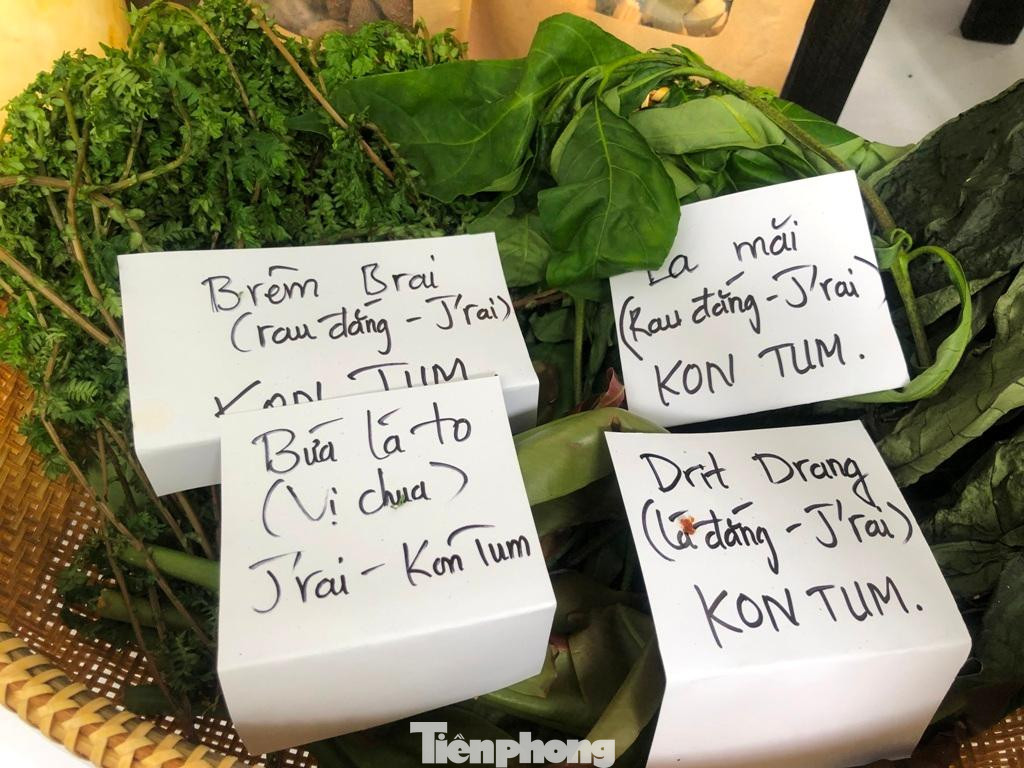 Brêm Brai
(rau đắng - J'rai)
KON TUM
La mãi
(Rau đắng - J'rai)
KON TUM.
Bứa lá to
(Vị chua)
J'rai - Kon Tum
Drit Drang
(Lá đắng - J'rai)
KON TUM.
Tiênphong